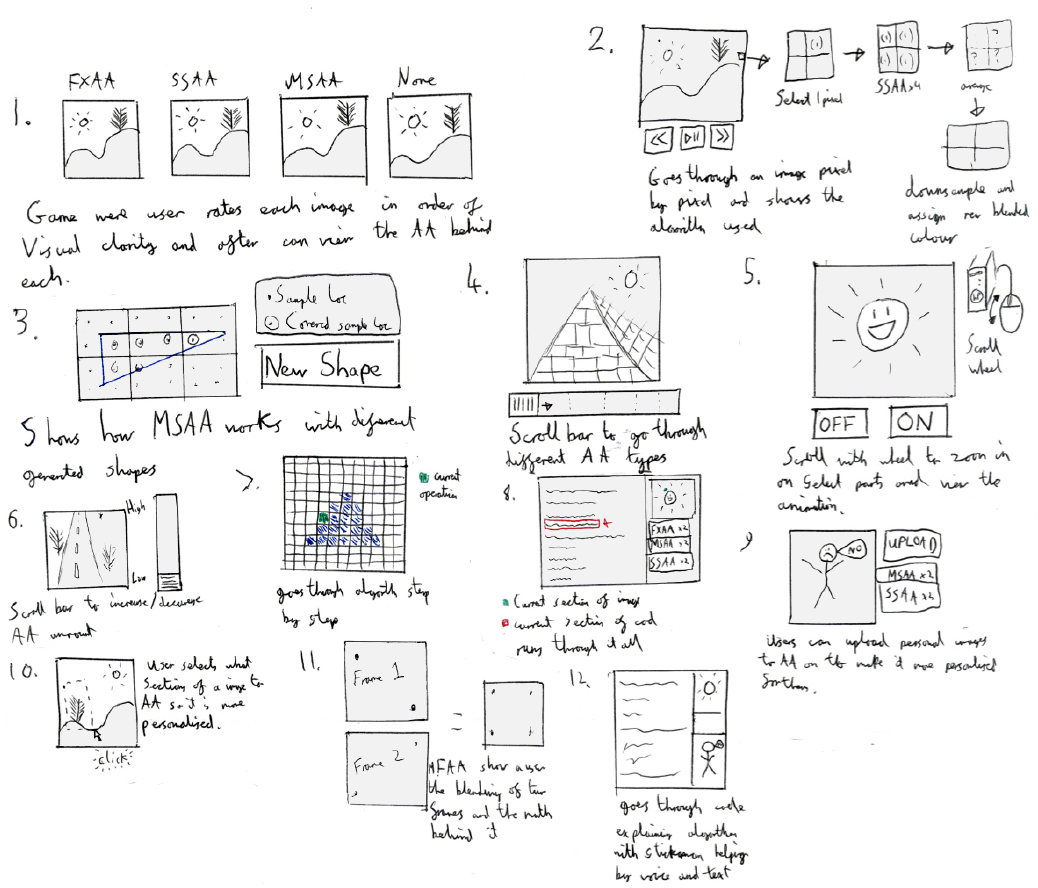 1.
FXAA
SSAA
MSAA
None
Game were user rates each image in order of
Visual clarity and after can view the AA behind
each.
2.
Select 1 pixel
SSAA x4
average
<<
>>
Goes through an image pixel
by pixel and shows the
used
downsample and
assign new blended
colour
3.
• Sample Loc
Covered sample Loc
New Shape
Shows how MSAA works with different
generated shapes
4.
Scroll bar to go through
different AA types
5.
Scroll
wheel
OFF
ON
Scroll with wheel to zoom in
on select parts and view the
animation.
6.
High
Low
Scroll bar to increase/decrease
AA amount
7.
current
operation
goes through algorithm step
by step
8.
FXAA x2
MSAA x2
SSAA x2
Current section of image
current section of code
runs through it all
9
NO
UPLOAD
MSAA x2
SSAA x2
Users can upload personal images
to AA on to make it more personalised
for them.
10.
User selects what
section of a image to
AA so it is more
personalised.
click
11.
Frame 1
=
Frame 2
show user
the blending of two
frames and the math
behind it
12.
goes through code
explaining algorithm
with stickman helping
by voice and text